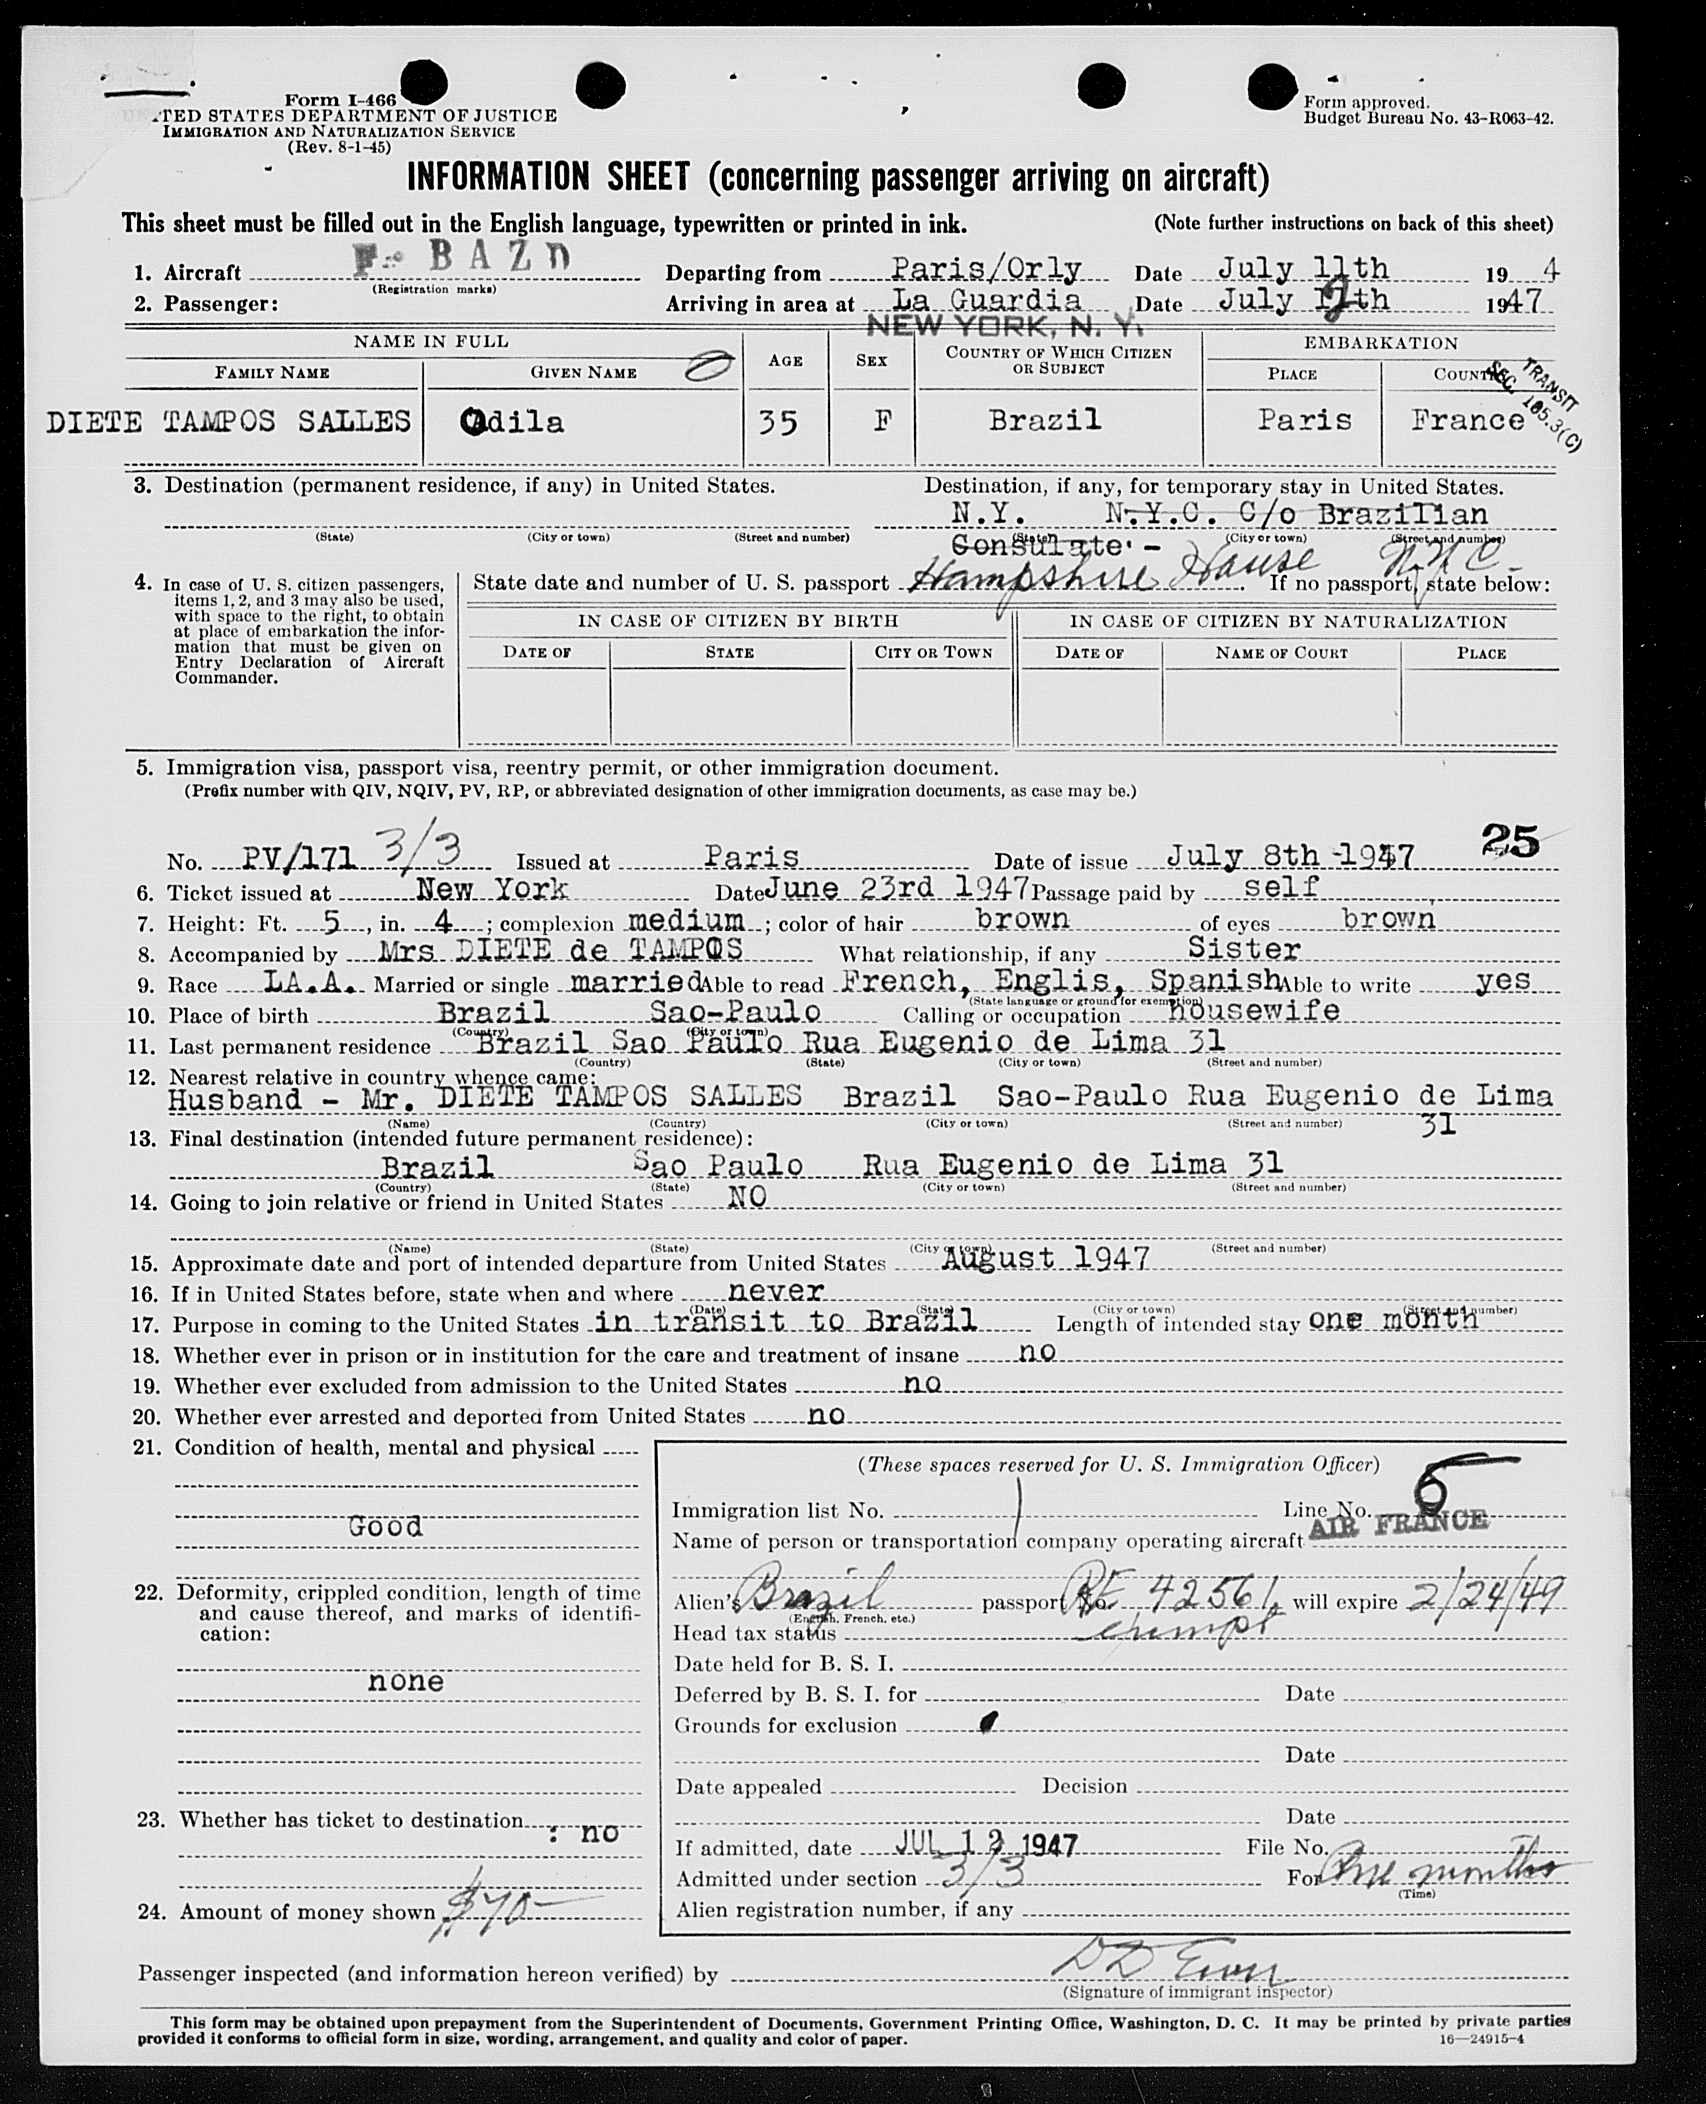 Form I-466
UNITED STATES DEPARTMENT OF JUSTICE
IMMIGRATION AND NATURALIZATION SERVICE
(Rev. 8-1-45)
Form approved.
Budget Bureau No. 43-R063-42.
INFORMATION SHEET (concerning passenger arriving on aircraft)
This sheet must be filled out in the English language, typewritten or printed in ink. (Note further instructions on back of this sheet)
1. Aircraft F- BAZD Departing from Paris/Orly Date July 11th 194
(Registration marks)
2. Passenger: Arriving in area at La Guardia Date July 12th 1947
NEW YORK, N. Y.
NAME IN FULL AGE SEX COUNTRY OF WHICH CITIZEN OR SUBJECT EMBARKATION
FAMILY NAME GIVEN NAME PLACE COUNTRY
TRANSIT
SEC. 165.3(C)
DIETE TAMPOS SALLES Odila 35 F Brazil Paris France
3. Destination (permanent residence, if any) in United States. Destination, if any, for temporary stay in United States.
N.Y. N.Y.C. C/o Brazilian
(State) (City or town) (Street and number) (State) (City or town) (Street and number)
Consulate. -
Hampshire House N.Y.C.
4. In case of U. S. citizen passengers, items 1, 2, and 3 may also be used, with space to the right, to obtain at place of embarkation the information that must be given on Entry Declaration of Aircraft Commander.
State date and number of U. S. passport . If no passport, state below:
IN CASE OF CITIZEN BY BIRTH IN CASE OF CITIZEN BY NATURALIZATION
DATE OF STATE CITY OR TOWN DATE OF NAME OF COURT PLACE
5. Immigration visa, passport visa, reentry permit, or other immigration document.
(Prefix number with QIV, NQIV, PV, RP, or abbreviated designation of other immigration documents, as case may be.)
25
No. PV/171 3/3 Issued at Paris Date of issue July 8th -1947
6. Ticket issued at New York Date June 23rd 1947 Passage paid by self
7. Height: Ft. 5, in. 4; complexion medium; color of hair brown of eyes brown
8. Accompanied by Mrs DIETE de TAMPOS What relationship, if any Sister
9. Race LA.A. Married or single married Able to read French, Englis, Spanish Able to write yes
(State language or ground for exemption)
10. Place of birth Brazil Sao-Paulo Calling or occupation housewife
(Country) (City or town)
11. Last permanent residence Brazil Sao Paulo Rua Eugenio de Lima 31
(Country) (State) (City or town) (Street and number)
12. Nearest relative in country whence came:
Husband - Mr. DIETE TAMPOS SALLES Brazil Sao-Paulo Rua Eugenio de Lima
(Name) (Country) (City or town) (Street and number) 31
13. Final destination (intended future permanent residence):
Brazil Sao Paulo Rua Eugenio de Lima 31
(Country) (State) (City or town) (Street and number)
14. Going to join relative or friend in United States NO
(Name) (State) (City or town) (Street and number)
15. Approximate date and port of intended departure from United States August 1947
16. If in United States before, state when and where never
(Date) (State) (City or town) (Street and number)
17. Purpose in coming to the United States in transit to Brazil Length of intended stay one month
18. Whether ever in prison or in institution for the care and treatment of insane no
19. Whether ever excluded from admission to the United States no
20. Whether ever arrested and deported from United States no
21. Condition of health, mental and physical
Good
22. Deformity, crippled condition, length of time and cause thereof, and marks of identification:
none
23. Whether has ticket to destination
: no
24. Amount of money shown $70-
(These spaces reserved for U. S. Immigration Officer)
Immigration list No. 1 Line No. 6
Name of person or transportation company operating aircraft AIR FRANCE
Alien's Brazil passport No. RE 42561, will expire 2/24/49
(English, French, etc.)
Head tax status exempt
Date held for B. S. I.
Deferred by B. S. I. for Date
Grounds for exclusion
Date
Date appealed Decision
Date
If admitted, date JUL 12 1947 File No.
Admitted under section 3/3 For One months
(Time)
Alien registration number, if any
Passenger inspected (and information hereon verified) by
(Signature of immigrant inspector)
This form may be obtained upon prepayment from the Superintendent of Documents, Government Printing Office, Washington, D. C. It may be printed by private parties
provided it conforms to official form in size, wording, arrangement, and quality and color of paper. 16—24915-4